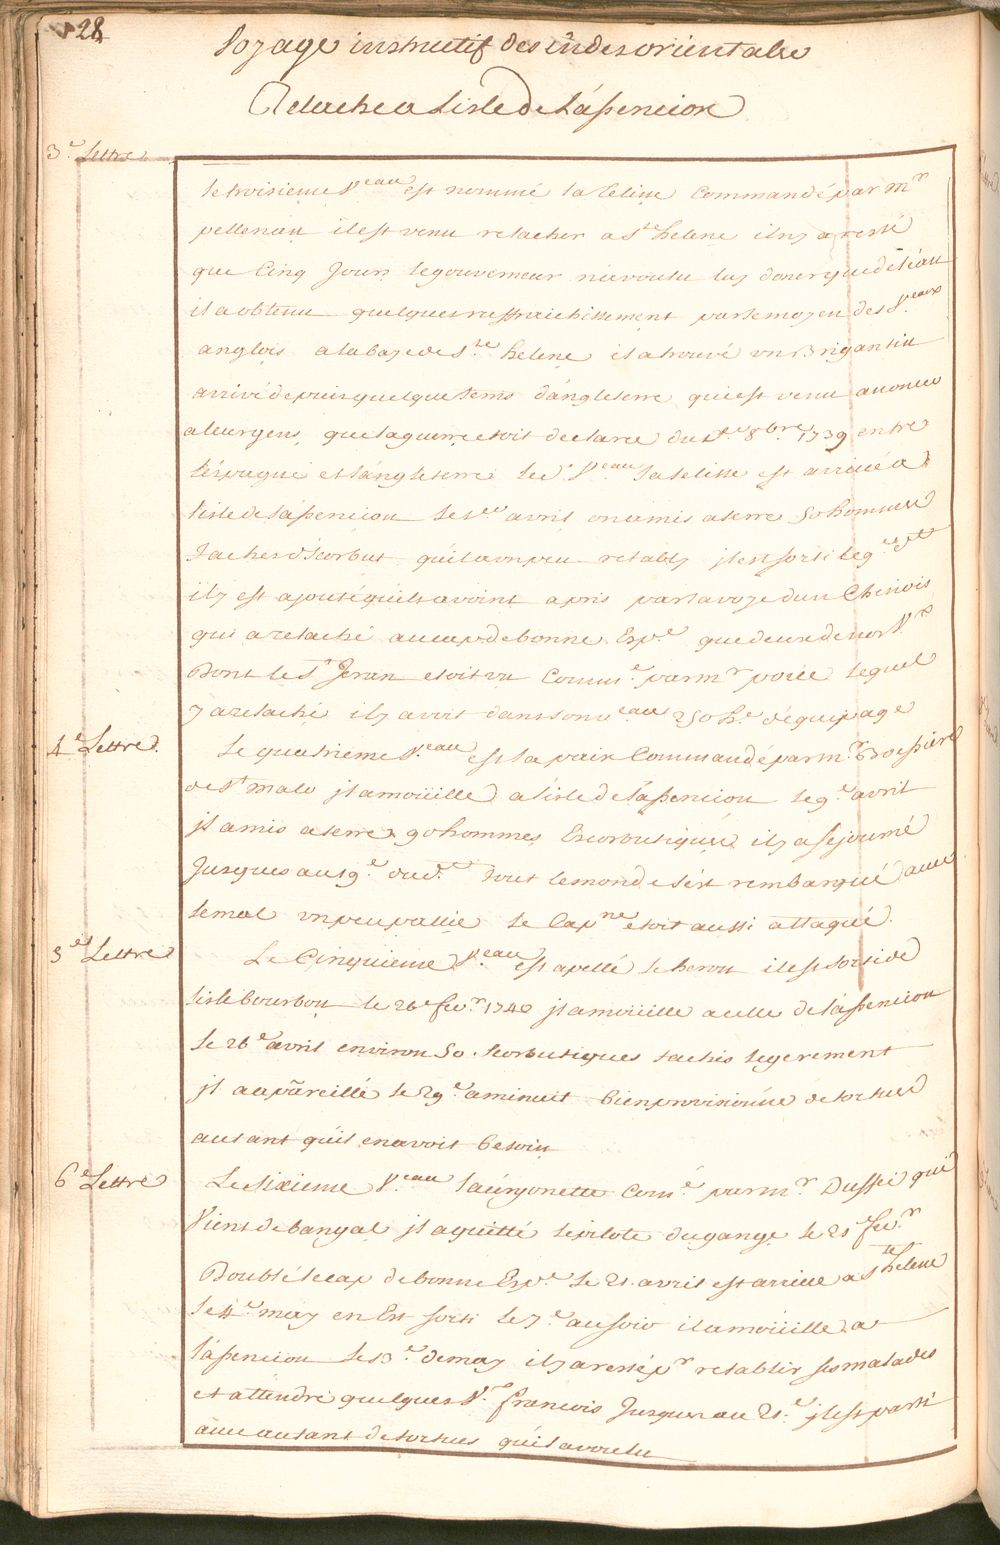 28
Voyage instructif des indes orientalle
Relache a Lisle de Lássencion
3.e Lettre
le troisieme V.eau est nommé la Teliue Commandé par Mr
pellenau il est venu relacher a St. helene il ny a resté
que Cinq Jours le gouverneur na voulu luy doner que de léau
il a obtenu quelques raffraichissement par le moyen des V.eaux
anglois a la baye de S.te helene il a trouvé un Brigantin
arrivé depuis quelque tems d'ángleterre qui est venu anoncer
a leurs gens que la guerre etoit declarée du 8bre 1739 entre
léspagne et lángleterre le d.t V.eau la telisse est arrivé a
l'isle de lássencion le avril on a mis a terre 50 hommes
tachés d'scorbut qu'il a un peu retably il est sorti le 9.e
il y est ajouté qu'ils avoint apris par la voye dun Chinois
qui a relaché au cap de bonne Esp.e que deux de nos V.x
Dont le St. Jeran etoit un Comm.é par Mr. porée lequel
y a relaché il y avoit dans son v.eau 250 h.e déquipage
4.e Lettre
Le quatrieme V.eau est la paix Commandé par Mr. Boissiere
de St malo il a moüille a l'isle de lássencion le 9.e avril
il a mis a terre 90 hommes Escorbutiques il y a sejourné
Jusques au 19.e dud.t tout le monde s'ést rembarqué avec
le mal un peu pallié le Cap.ne etoit aussi attaqué
5.e Lettre
Le Cinquieme V.eau est apellé le heron il est sorti de
lisle bourbon le 26.e fev.r 1740 il a moüille a celle de lássencion
le 26.e avril environ 50. scorbutiques tachés legerement
il a apareillé le 29.e a minuit bien provisionné de tortues
autant quil en avoit besoin
6.e Lettre
Le Sixieme V.eau Com.é par Mr. Dussei qui
Vient de bangal il a quitté le pilote du gange le 21 fev.r
Doublé le cap de bonne Esp.e le 21. avril est arrivé a S.te helene
le 4.e may en Est sorti le 7.e au soir il a moüille a
lássencion le 13.e de may il y a resté p.r retablir ses malades
et attendre quelques V.x francois Jusques au 21.e il est parti
avec autant de tortues quil a voulu